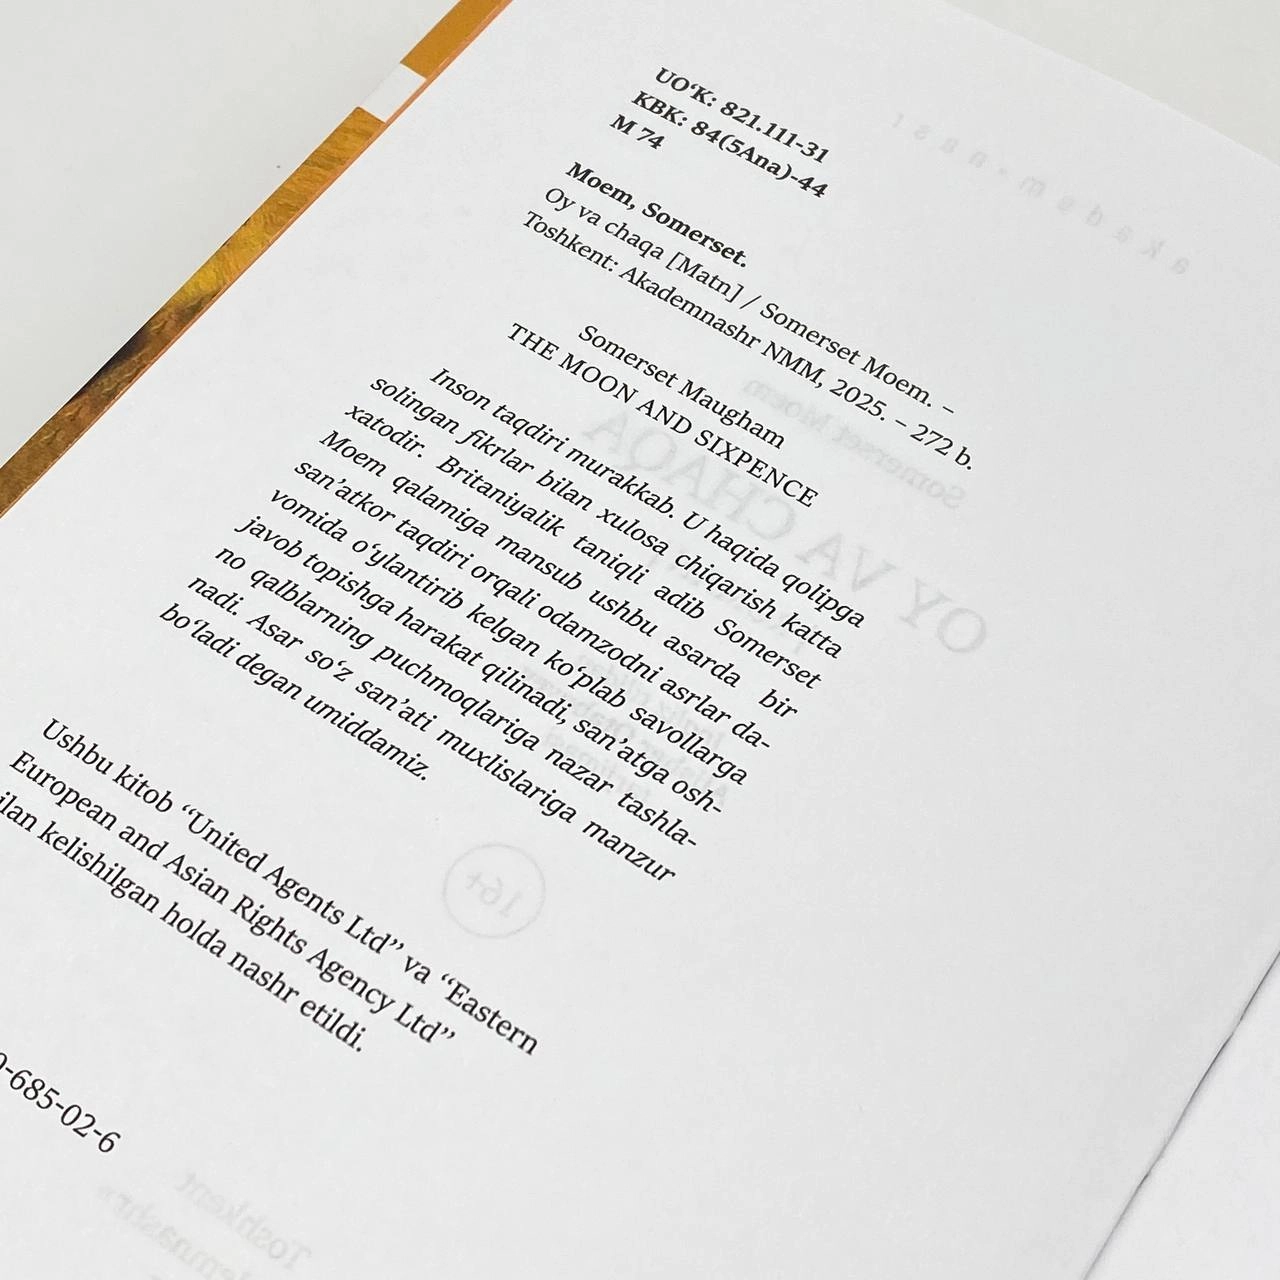 UO‘K: 821.111-31
KBK: 84(5Ana)-44
M 74
Moem, Somerset.
Oy va chaqa [Matn] / Somerset Moem. –
Toshkent: Akademnashr NMM, 2025. – 272 b.
Somerset Maugham
THE MOON AND SIXPENCE
Inson taqdiri murakkab. U haqida qolipga
solingan fikrlar bilan xulosa chiqarish katta
xatodir. Britaniyalik taniqli adib Somerset
Moem qalamiga mansub ushbu asarda bir
san’atkor taqdiri orqali odamzodni asrlar da-
vomida o‘ylantirib kelgan ko‘plab savollarga
javob topishga harakat qilinadi, san’atga osh-
no qalblarning puchmoqlariga nazar tashla-
nadi. Asar so‘z san’ati muxlislariga manzur
bo‘ladi degan umiddamiz.
Ushbu kitob “United Agents Ltd” va “Eastern
European and Asian Rights Agency Ltd”
ilan kelishilgan holda nashr etildi.
-685-02-6
akadem-nasr
Somerset Moem
OY VA CHAQA
16+
Toshkent